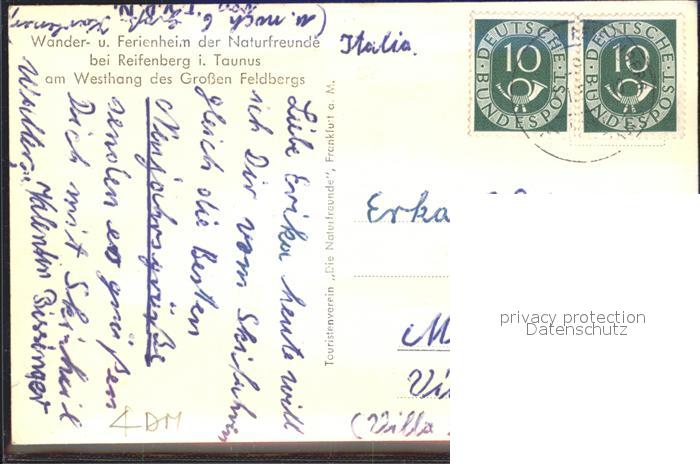 Wander- u. Ferienheim der Naturfreunde
bei Reifenberg i. Taunus
am Westhang des Großen Feldbergs
Italia.
DEUTSCHE BUNDESPOST 10
DEUTSCHE BUNDESPOST 10
Touristenverein „Die Naturfreunde", Frankfurt a. M.
Liebe Erika heute will
ich Dir vom Skifahren
gleich die Besten
Neujahrsgrüße
senden es grüßen
Dich mit Skiheil
Walter, Valentin Bissinger
(u. noch 6
Erka
M
Vi
(Villa
4 DM
privacy protection
Datenschutz